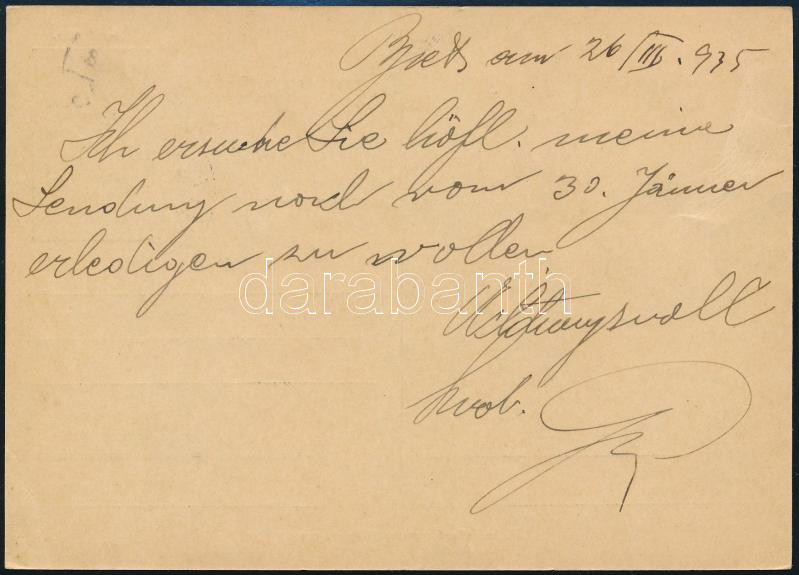 am 26/III. 935
Ich ersuche Sie höfl. meine
Sendung noch vom 30. Jänner
erledigen zu wollen.
Achtungsvoll
darabanth.com